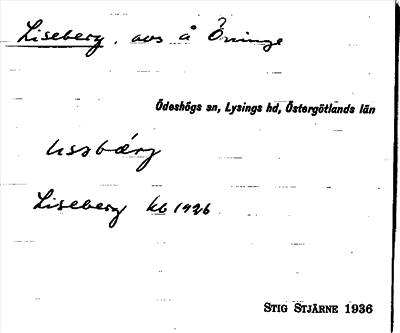 Liseberg, avs å Öninge
Ödeshögs sn, Lysings hd, Östergötlands län
Liseberg kb 1926
STIG STJÄRNE 1936